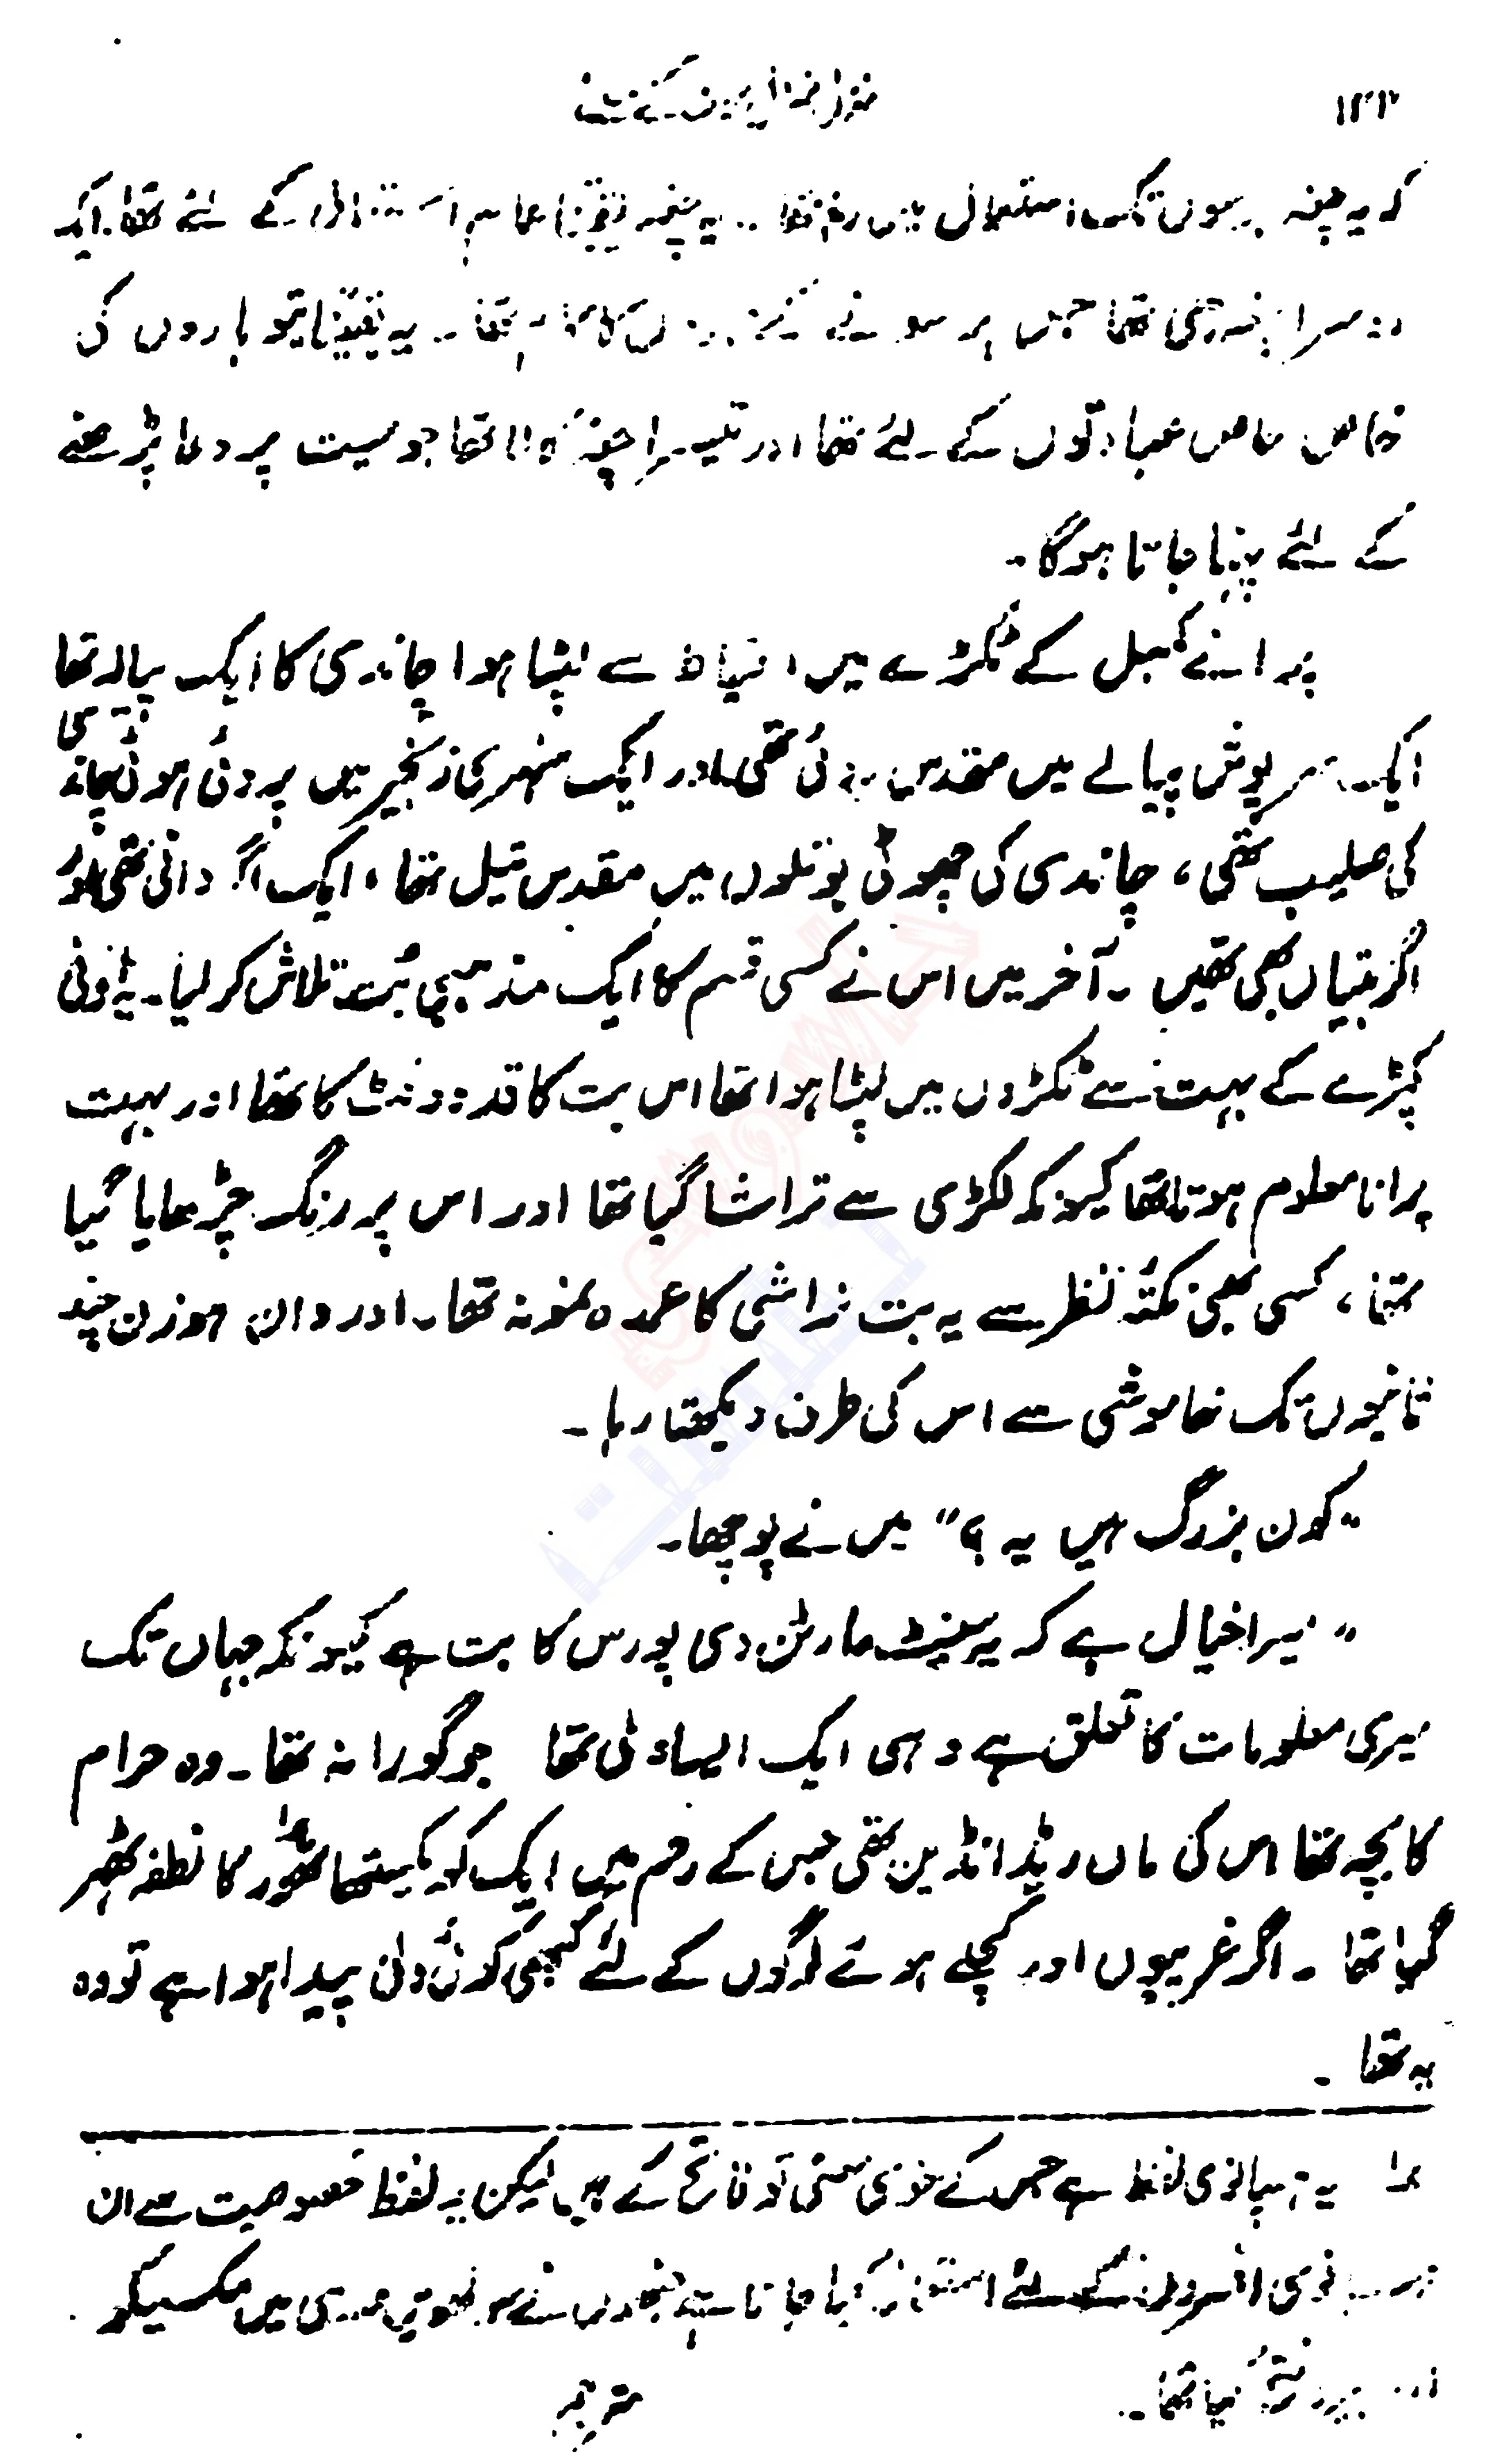 ۱۳۲
کہ یہ چغہ برسوں تک استعمال میں رہا تھا .. یہ چغہ یقیناً عام استعمال کے لئے تھا۔ ایک
دوسرا چغہ بھی تھا جس پر سونے کے کام تھا۔ یہ یقیناً تیوہاروں کی
خاص خاص عبادتوں کے لئے تھا اور تیسرا چغہ کالا تھا جو میت پر دعا پڑھنے
کے لئے پہنا جاتا ہوگا۔
پرانے کمبل کے ٹکڑے میں احتیاط سے لپٹا ہوا چاندی کا ایک پیالہ تھا
ایک سرپوش پیالے میں مقدس روٹی تھی اور ایک سنہری زنجیر میں پروئی ہوئی چاندی
کی صلیب تھی، چاندی کی چھوٹی بوتلوں میں مقدس تیل تھا، ایک اگر دانی تھی اور
اگر بتیاں بھی تھیں ۔ آخر میں اس نے کسی قسم کا ایک مذہبی بُت تلاش کر لیا۔ یہ اونی
کپڑے کے بہت سے ٹکڑوں میں لپٹا ہوا تھا اس بت کا قد دو فٹ کا تھا اور بہت
پرانا معلوم ہوتا تھا کیونکہ لکڑی سے تراشا گیا تھا اور اس پر رنگ چڑھایا گیا
تھا، کسی بھی نکتۂ نظر سے یہ بت تراشی کا عمدہ نمونہ تھا۔ اور وان ہوزن چند
ثانیوں تک خاموشی سے اس کی طرف دیکھتا رہا۔
"کون بزرگ ہیں یہ ؟" میں نے پوچھا۔
"میرا خیال ہے کہ یہ سینٹ مارٹن دی پورس کا بت ہے کیونکہ جہاں تک
میری معلومات کا تعلق ہے وہی ایک ایسا ولی تھا جو گورا نہ تھا۔ وہ حرام
کا بچہ تھا اس کی ماں ریڈ انڈین تھی جس کے رحم میں ایک کا نطفہ ٹھہر
گیا تھا ۔ اگر غریبوں اور کچلے ہوئے لوگوں کے لئے کبھی کوئی ولی پیدا ہوا ہے تو وہ
یہ تھا ۔
۱؎ یہ ہسپانوی لفظ ہے جس کے لغوی معنی تو فاتح کے ہیں لیکن یہ لفظ خصوصیت سے ان
کے لئے استعمال کیا جاتا ہے جنہوں نے سولھویں صدی میں میکسیکو
اور پیرو فتح کیا تھا۔
مترجم